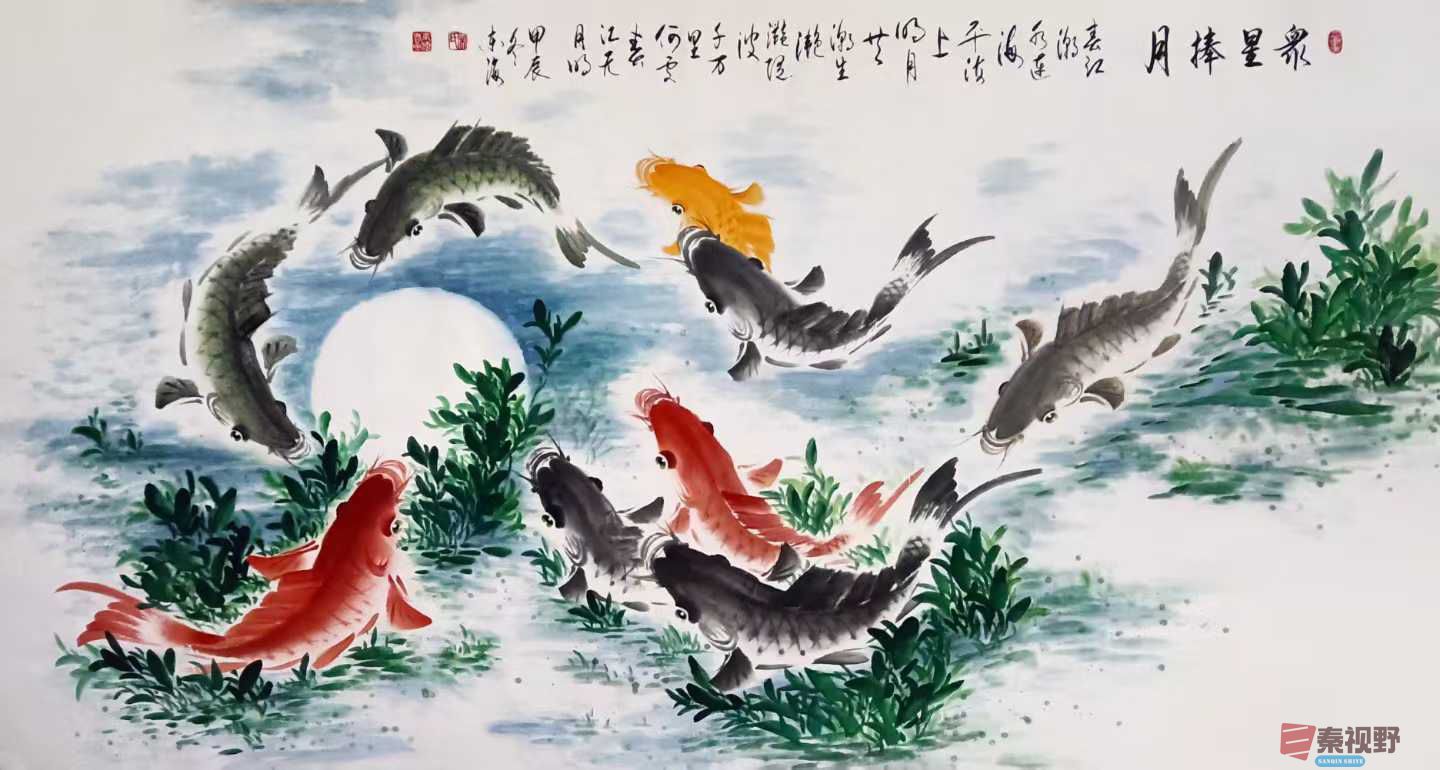 衆星捧月
春江
潮
水连
海
平海
上
明月
共
潮生
滟
滟随
波
千万
里
何处
春
江无
月明
甲辰
冬
东海
秦视野
SANQIN SHIYE